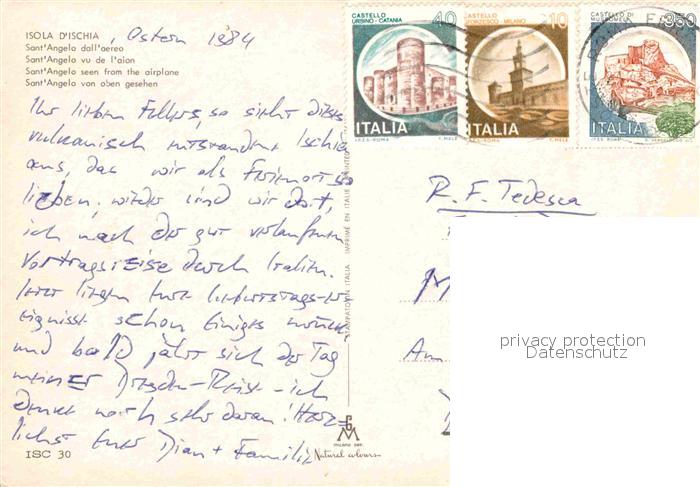 ISOLA D'ISCHIA
Sant'Angelo dall'aereo
Sant'Angelo vu de l'aion
Sant'Angelo seen from the airplane
Sant'Angelo von oben gesehen
, Ostern 1984
Ihr lieben so sieht dieses
vulkanisch entstandene Ischia
aus, das wir als Ferienort so
lieben. wieder sind wir dort,
ich nach der gut verlaufenen
Vortragsreise durch Italien.
Hier liegen Eure Geburtstags-Er
eignisse schon einiges
und bald jährt sich der Tag
meiner Dresden-Reise - ich
denke noch sehr daran! Herz-
lichst Euer Dian + Familie
ISC 30
CASTELLO URSINO - CATANIA
40
ITALIA
I.P.Z.S.-ROMA
CASTELLO SFORZESCO MILANO
10
ITALIA
I.P.Z.S.-ROMA
CASTELLO DI
350
ITALIA
I.P.Z.S.-ROMA
R. F. Tedesca
M
Am
STAMPATO IN ITALIA IMPRIMÉ EN ITALIE
MILANO
Natural colours
privacy protection
Datenschutz